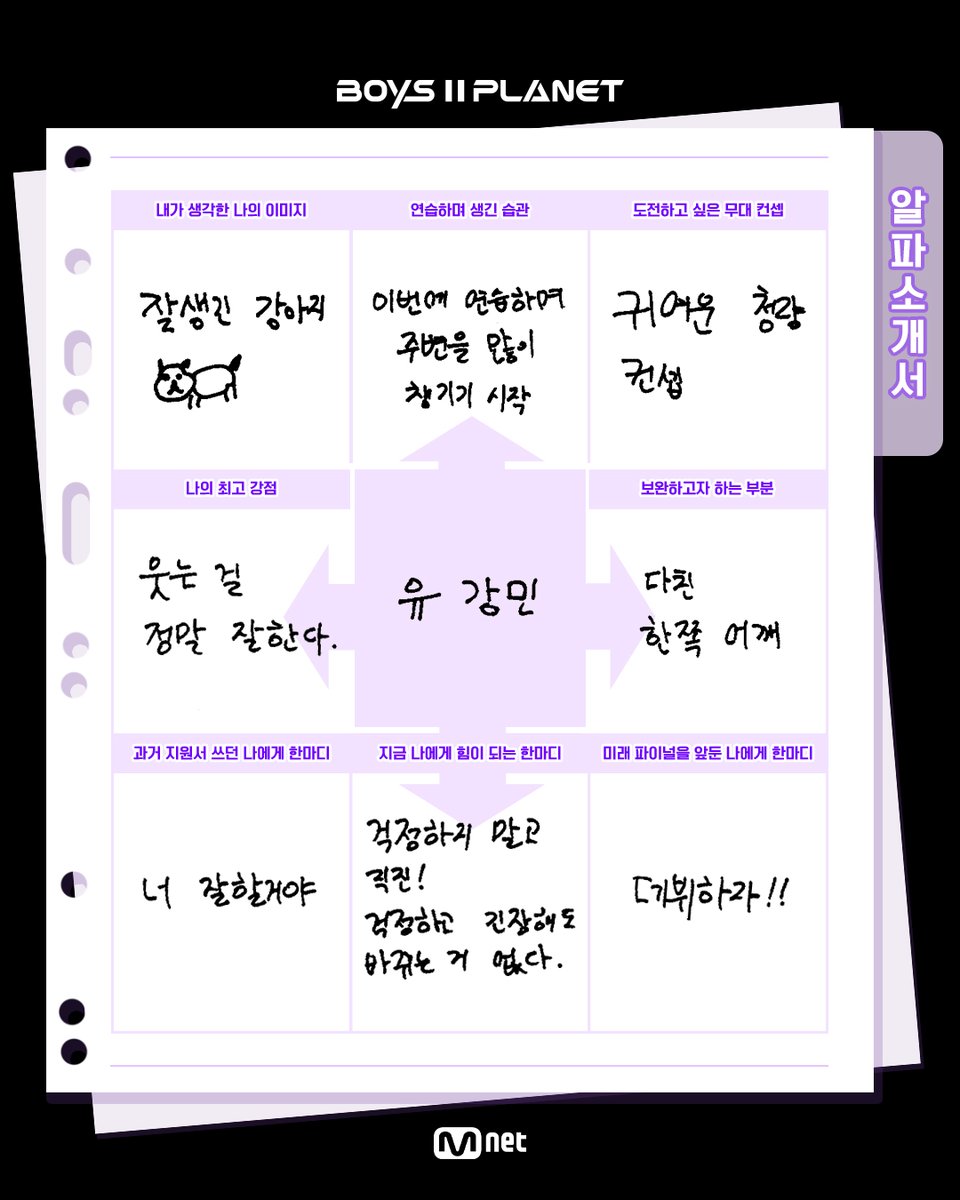 BOYS II PLANET
알파소개서
내가 생각한 나의 이미지
잘생긴 강아지
연습하며 생긴 습관
이번에 연습하며
주변을 많이
챙기기 시작
도전하고 싶은 무대 컨셉
귀여운 청량
컨셉
나의 최고 강점
웃는 걸
정말 잘한다.
유 강민
보완하고자 하는 부분
다친
한쪽 어깨
과거 지원서 쓰던 나에게 한마디
너 잘할거야
지금 나에게 힘이 되는 한마디
걱정하지 말고
직진!
걱정하고 긴장해도
바뀌는 거 없다.
미래 파이널을 앞둔 나에게 한마디
데뷔하자!!
Mnet